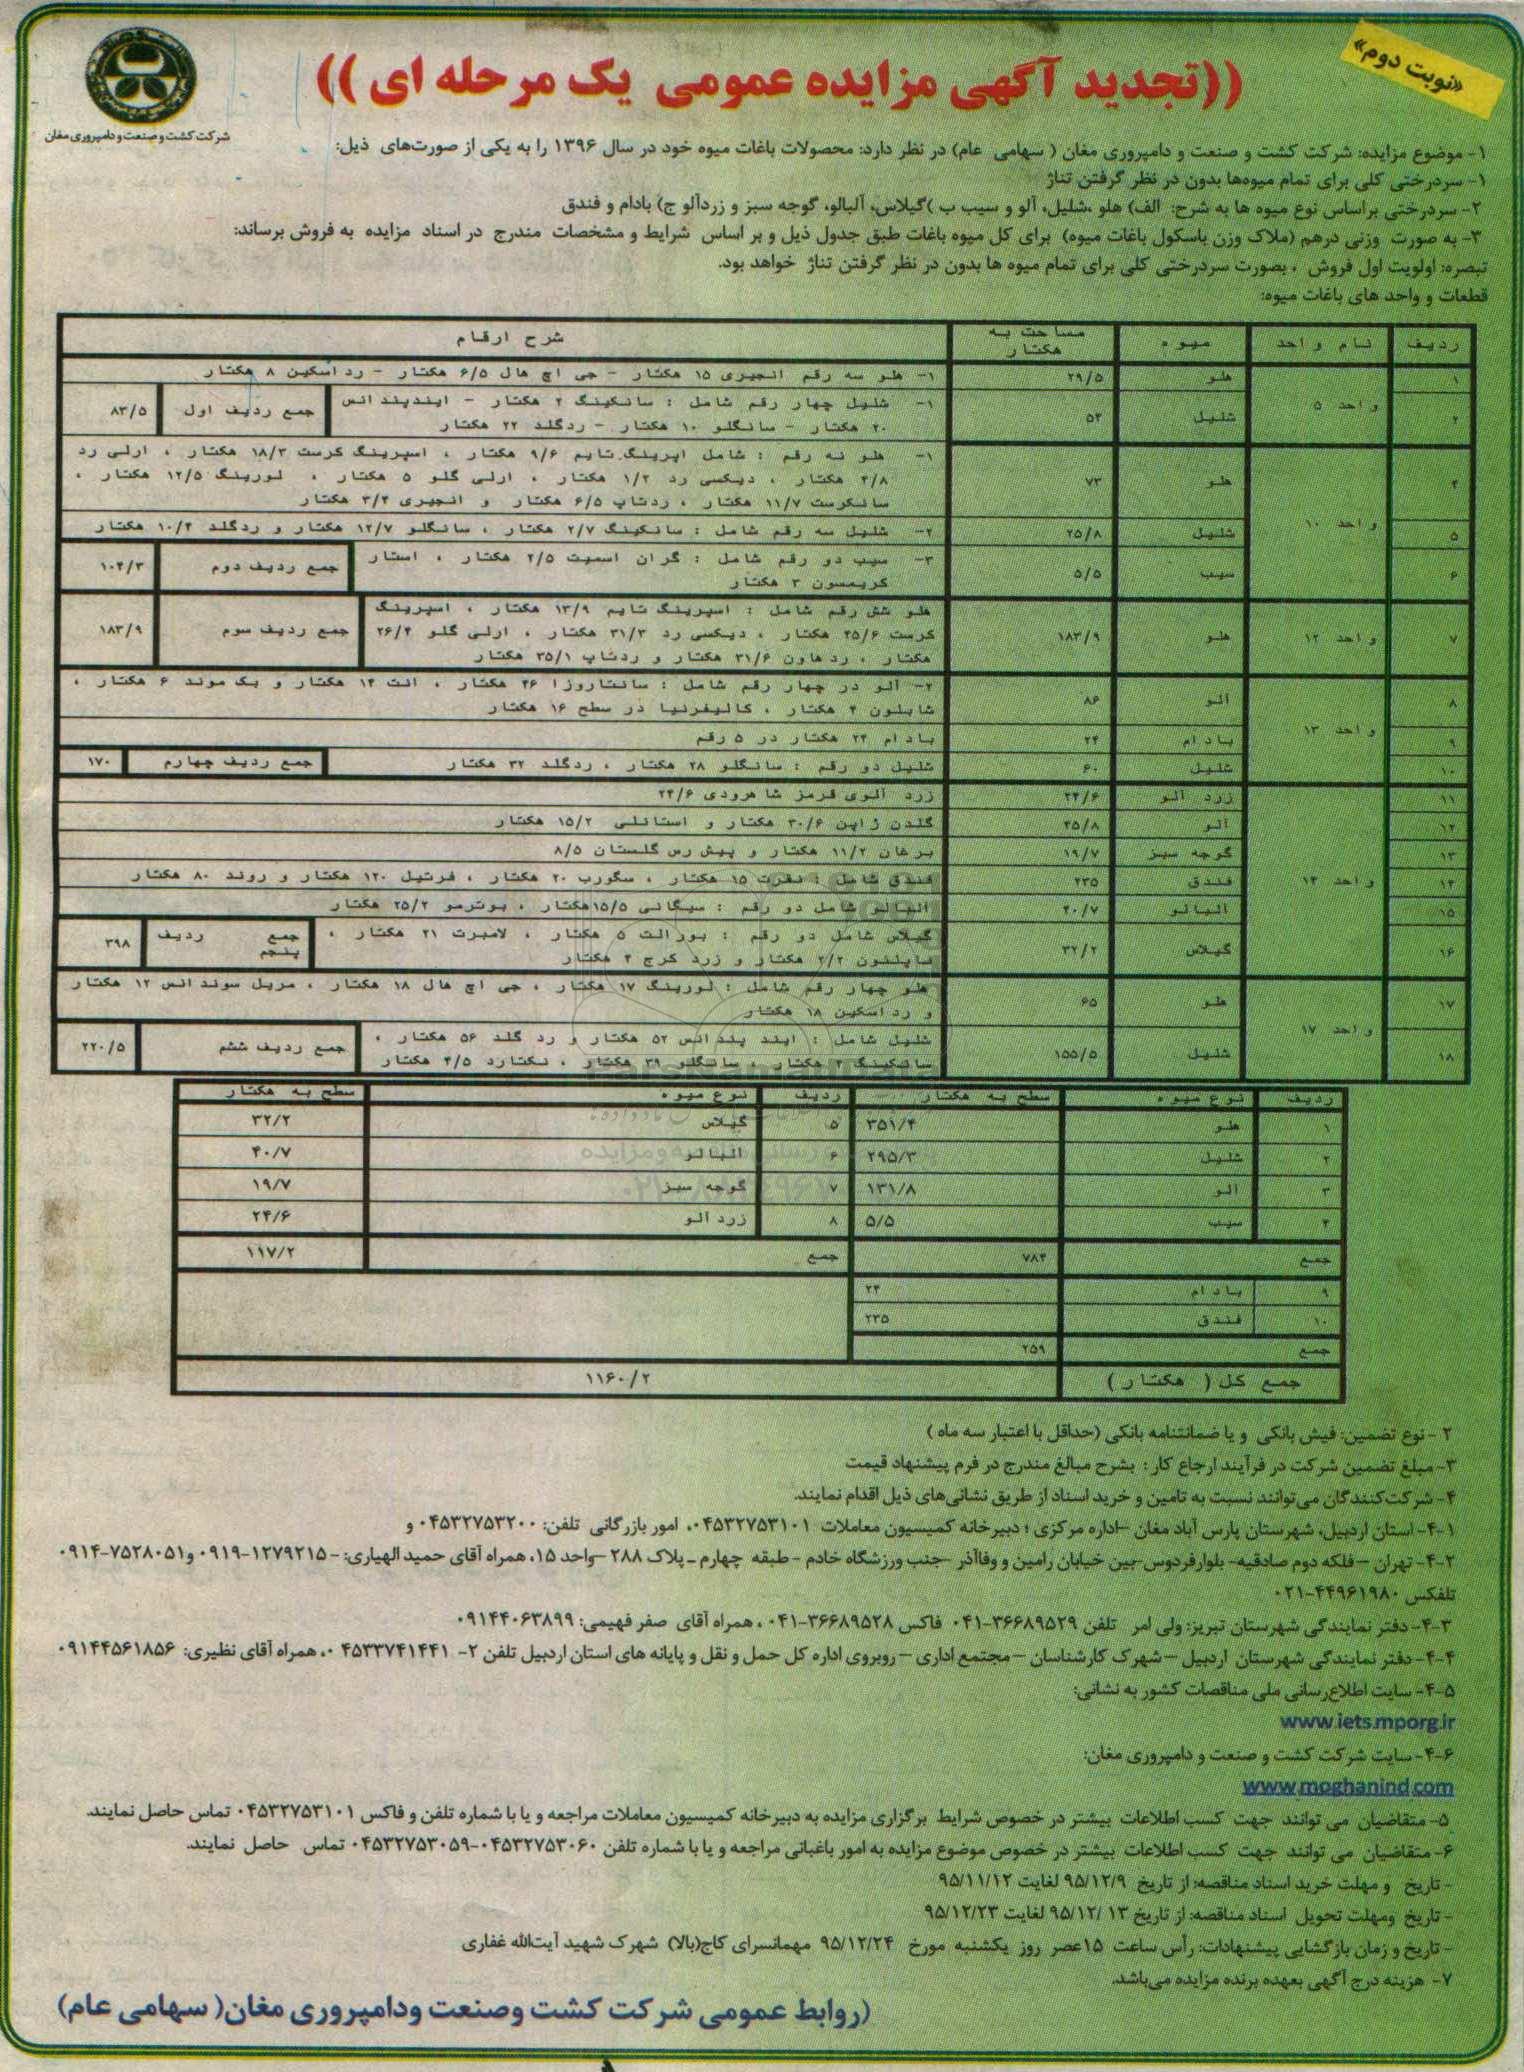 «نوبت دوم»
((تجدید آگهی مزایده عمومی یک مرحله ای ))
شرکت کشت و صنعت و دامپروری مغان
۱- موضوع مزایده: شرکت کشت و صنعت و دامپروری مغان ( سهامی عام) در نظر دارد: محصولات باغات میوه خود در سال ۱۳۹۶ را به یکی از صورت‌های ذیل:
۱- سردرختی کلی برای تمام میوه‌ها بدون در نظر گرفتن تناژ
۲- سردرختی براساس نوع میوه ها به شرح: الف) هلو ،شلیل، آلو و سیب ب )گیلاس، آلبالو، گوجه سبز و زردآلو ج) بادام و فندق
۳- به صورت وزنی درهم (ملاک وزن باسکول باغات میوه) برای کل میوه باغات طبق جدول ذیل و بر اساس شرایط و مشخصات مندرج در اسناد مزایده به فروش برساند:
تبصره: اولویت اول فروش ، بصورت سردرختی کلی برای تمام میوه ها بدون در نظر گرفتن تناژ خواهد بود.
قطعات و واحد های باغات میوه:
ردیف نام واحد میوه مساحت به هکتار شرح ارقام
۱ واحد ۵ هلو ۲۹/۵ ۱- هلو سه رقم انجیری ۱۵ هکتار - جی اچ هال ۶/۵ هکتار - رد اسکین ۸ هکتار
۲ شلیل ۵۴ ۱- شلیل چهار رقم شامل : سانکینگ ۲ هکتار - ایندپندانس
۲۰ هکتار - سانگلو ۱۰ هکتار - ردگلد ۲۲ هکتار
جمع ردیف اول ۸۳/۵
۴ واحد ۱۰ هلو ۷۳ ۱- هلو نه رقم : شامل اپرینگ تایم ۹/۶ هکتار ، اسپرینگ کرست ۱۸/۳ هکتار ، ارلی رد
۴/۸ هکتار ، دیکسی رد ۱/۲ هکتار ، ارلی گلو ۵ هکتار ، لورینگ ۱۲/۵ هکتار ،
سانکرست ۱۱/۷ هکتار ، ردتاپ ۶/۵ هکتار و انجیری ۳/۴ هکتار
۵ شلیل ۲۵/۸ ۲- شلیل سه رقم شامل : سانکینگ ۲/۷ هکتار ، سانگلو ۱۲/۷ هکتار و ردگلد ۱۰/۴ هکتار
۶ سیب ۵/۵ ۳- سیب دو رقم شامل : گران اسمیت ۲/۵ هکتار ، استار
کریمسون ۳ هکتار
جمع ردیف دوم ۱۰۴/۳
۷ واحد ۱۲ هلو ۱۸۳/۹ هلو شش رقم شامل : اسپرینگ تایم ۱۳/۹ هکتار ، اسپرینگ
کرست ۴۵/۶ هکتار ، دیکسی رد ۳۱/۳ هکتار ، ارلی گلو ۲۶/۴
هکتار ، ردهاون ۳۱/۶ هکتار و ردتاپ ۳۵/۱ هکتار
جمع ردیف سوم ۱۸۳/۹
۸ واحد ۱۳ الو ۸۶ ۲- آلو در چهار رقم شامل : سانتاروزا ۴۶ هکتار ، انت ۱۴ هکتار و بک موند ۶ هکتار ،
شابلون ۴ هکتار ، کالیفرنیا در سطح ۱۶ هکتار
۹ بادام ۲۴ بادام ۲۴ هکتار در ۵ رقم
۱۰ شلیل ۶۰ شلیل دو رقم : سانگلو ۲۸ هکتار ، ردگلد ۳۲ هکتار
جمع ردیف چهارم ۱۷۰
۱۱ واحد ۱۴ زرد آلو ۲۴/۶ زرد آلوی قرمز شاهرودی ۲۴/۶
۱۲ آلو ۴۵/۸ گلدن ژاپن ۳۰/۶ هکتار و استانلی ۱۵/۲ هکتار
۱۳ گوجه سبز ۱۹/۷ برغان ۱۱/۲ هکتار و پیش رس گلستان ۸/۵
۱۴ فندق ۲۳۵ فندق شامل : نقرت ۱۵ هکتار ، سگورب ۲۰ هکتار ، فرتیل ۱۲۰ هکتار و روند ۸۰ هکتار
۱۵ البالو ۴۰/۷ البالو شامل دو رقم : سیگانی ۱۵/۵هکتار ، بوترمو ۲۵/۲ هکتار
۱۶ گیلاس ۳۲/۲ گیلاس شامل دو رقم : بورالت ۵ هکتار ، لامبرت ۲۱ هکتار ،
ناپلئون ۲/۲ هکتار و زرد کرج ۴ هکتار
جمع ردیف پنجم ۳۹۸
۱۷ واحد ۱۷ هلو ۶۵ هلو چهار رقم شامل : لورینگ ۱۷ هکتار ، جی اچ هال ۱۸ هکتار ، مریل سوندانس ۱۲ هکتار
و رد اسکین ۱۸ هکتار
۱۸ شلیل ۱۵۵/۵ شلیل شامل : ایند پندانس ۵۲ هکتار و رد گلد ۵۶ هکتار ،
سانکینگ ۴ هکتار ، سانگلو ۳۹ هکتار ، نکتارد ۴/۵ هکتار
جمع ردیف ششم ۲۲۰/۵
ردیف نوع میوه سطح به هکتار ردیف نوع میوه سطح به هکتار
۱ هلو ۳۵۱/۴ ۵ گیلاس ۳۲/۲
۲ شلیل ۲۹۵/۳ ۶ البالو ۴۰/۷
۳ الو ۱۳۱/۸ ۷ گوجه سبز ۱۹/۷
۴ سیب ۵/۵ ۸ زرد الو ۲۴/۶
جمع ۷۸۴ جمع ۱۱۷/۲
۹ بادام ۲۴
۱۰ فندق ۲۳۵
جمع ۲۵۹
جمع کل ( هکتار ) ۱۱۶۰/۲
۲ - نوع تضمین: فیش بانکی و یا ضمانتنامه بانکی (حداقل با اعتبار سه ماه )
۳- مبلغ تضمین شرکت در فرآیند ارجاع کار : بشرح مبالغ مندرج در فرم پیشنهاد قیمت
۴- شرکت‌کنندگان می‌توانند نسبت به تامین و خرید اسناد از طریق نشانی‌های ذیل اقدام نمایند.
۴-۱- استان اردبیل، شهرستان پارس آباد مغان –اداره مرکزی ؛ دبیرخانه کمیسیون معاملات ۰۴۵۳۲۷۵۳۱۰۱، امور بازرگانی تلفن: ۰۴۵۳۲۷۵۳۲۰۰ و
۴-۲- تهران –فلکه دوم صادقیه- بلوارفردوس-بین خیابان رامین و وفاآذر -جنب ورزشگاه خادم - طبقه چهارم – پلاک ۲۸۸ –واحد ۱۵، همراه آقای حمید الهیاری: ۱۲۷۹۲۱۵-۰۹۱۹ و۷۵۲۸۰۵۱-۰۹۱۴
تلفکس ۴۴۹۶۱۹۸۰-۰۲۱
۴-۳- دفتر نمایندگی شهرستان تبریز: ولی امر تلفن ۳۶۶۸۹۵۲۹-۰۴۱ فاکس ۳۶۶۸۹۵۲۸-۰۴۱ ، همراه آقای صفر فهیمی: ۰۹۱۴۴۰۶۳۸۹۹
۴-۴- دفتر نمایندگی شهرستان اردبیل –شهرک کارشناسان –مجتمع اداری – روبروی اداره کل حمل و نقل و پایانه های استان اردبیل تلفن ۲- ۰۴۵۳۳۷۴۱۴۴۱، همراه آقای نظیری: ۰۹۱۴۴۵۶۱۸۵۶
۴-۵- سایت اطلاع‌رسانی ملی مناقصات کشور به نشانی:
www.iets.mporg.ir
۴-۶- سایت شرکت کشت و صنعت و دامپروری مغان:
www.moghanind.com
۵- متقاضیان می توانند جهت کسب اطلاعات بیشتر در خصوص شرایط برگزاری مزایده به دبیرخانه کمیسیون معاملات مراجعه و یا با شماره تلفن و فاکس ۰۴۵۳۲۷۵۳۱۰۱ تماس حاصل نمایند.
۶- متقاضیان می توانند جهت کسب اطلاعات بیشتر در خصوص موضوع مزایده به امور باغبانی مراجعه و یا با شماره تلفن ۰۴۵۳۲۷۵۳۰۶۰-۰۴۵۳۲۷۵۳۰۵۹ تماس حاصل نمایند.
- تاریخ و مهلت خرید اسناد مناقصه: از تاریخ ۹۵/۱۲/۹ لغایت ۹۵/۱۱/۱۲
- تاریخ ومهلت تحویل اسناد مناقصه: از تاریخ ۹۵/۱۲/۱۳ لغایت ۹۵/۱۲/۲۳
- تاریخ و زمان بازگشایی پیشنهادات: رأس ساعت ۱۵عصر روز یکشنبه مورخ ۹۵/۱۲/۲۴ مهمانسرای کاج(بالا) شهرک شهید آیت‌الله غفاری
۷- هزینه درج آگهی بعهده برنده مزایده می‌باشد.
(روابط عمومی شرکت کشت وصنعت ودامپروری مغان( سهامی عام)